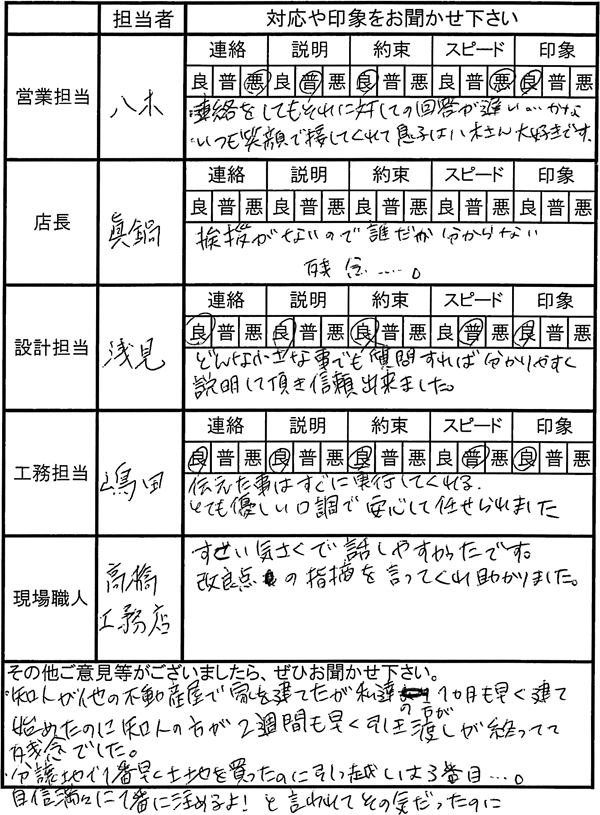 担当者 対応や印象をお聞かせ下さい
連絡 説明 約束 スピード 印象
良 普 悪 良 普 悪 良 普 悪 良 普 悪 良 普 悪
営業担当 八木
・連絡をしてもそれに対しての回答が遅い…かな
・いつも笑顔で接してくれて息子は八木さん大好きです。
連絡 説明 約束 スピード 印象
良 普 悪 良 普 悪 良 普 悪 良 普 悪 良 普 悪
店長 眞鍋
挨拶がないので誰だか分からない
残念……。
連絡 説明 約束 スピード 印象
良 普 悪 良 普 悪 良 普 悪 良 普 悪 良 普 悪
設計担当 浅見
どんな小さな事でも質問すれば分かりやすく
説明して頂き信頼出来ました。
連絡 説明 約束 スピード 印象
良 普 悪 良 普 悪 良 普 悪 良 普 悪 良 普 悪
工務担当 嶋田
伝えた事はすぐに実行してくれる。
とても優しい口調で安心して任せられました
現場職人 高橋
工務店
すごい気さくで話しやすかったです。
改良点の指摘を言ってくれ助かりました。
その他ご意見等がございましたら、ぜひお聞かせ下さい。
・知人が他の不動産屋で家を建てたが私達の方が1ヶ月も早く建て
始めたのに知人の方が2週間も早く引き渡しが終ってて
残念でした。
・分譲地で1番早く土地を買ったのに引っ越しは3番目…。
自信満々に1番に住めるよ!と言われてその気だったのに